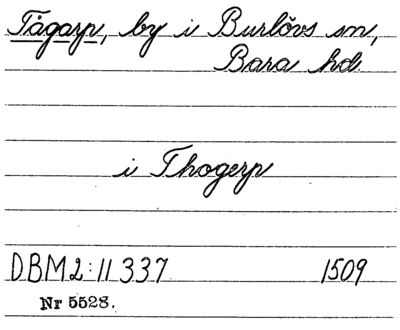 Tågarp, by i Burlövs sn,
Bara hd
i Thogerp
DBM2:11 337 1509
Nr 5528.